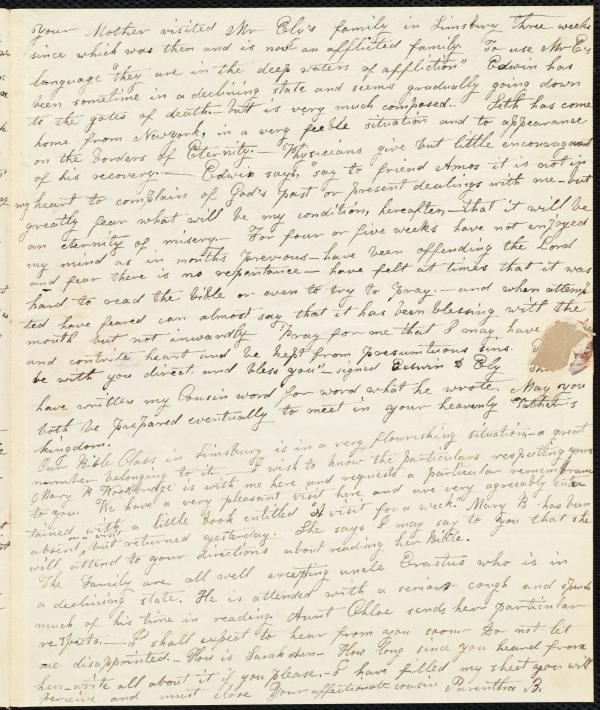 Your Mother visited Mr Ely's family in Simsbury three weeks
since which was then and is now an afflicted family. To use Mr E's
language "they are in the deep waters of affliction" Edwin has
been sometime in a declining state and seems gradually going down
to the gates of death - but is very much composed. Seth has come
home from Newyork, in a very feeble situation and to appearance
on the borders of Eternity. - Physicians give but little encouragment
of his recovery. - Edwin says, "say to friend Amos it is not in
my heart to complain of God's past or present dealings with me - but
greatly fear what will be my condition, hereafter, - that it will be
an eternity of misery. - For four or five weeks have not enjoyed
my mind as in months previous - have been offending the Lord
and fear there is no repentance - have felt at times that it was
hard to read the bible or even to try to pray. - and when attemp
ted have feared can almost say that it has been blessing with the
mouth but not inwardly Pray for me that I may have
and contrite heart and be kept from presumtuous sins.
be with you direct and bless you" - signed Edwin D Ely
have written my Cousin word for word what he wrote. May you
both be prepared eventually to meet in your heavenly Father's
kingdom.
Our Bible Class in Simsbury is in a very flourishing situation - a great
number belonging to it - I wish to know the particulars respecting yours
Mary B Woodbridge is with me here and requests a particular remembrance
to you. We have a very pleasant visit here and are very agreeably enter
tained with a little book entitled "A visit for a week." Mary B has been
absent, on a visit but returned yesterday. She says I may say to you that she
will attend to your directions about reading her Bible.
The Family are all well excepting uncle Erastus who is in
a declining state. He is attended with a serious cough and spends
much of his time in reading. Aunt Chloe sends her particular
respects. - I shall expect to hear from you soon Do not let
me disappointed. - How is Sarah Ann - How long since you heard from
her - write all about it if you please. - I have filled my sheet you will
perceive and must close Your affectionate cousin Parenthia B.